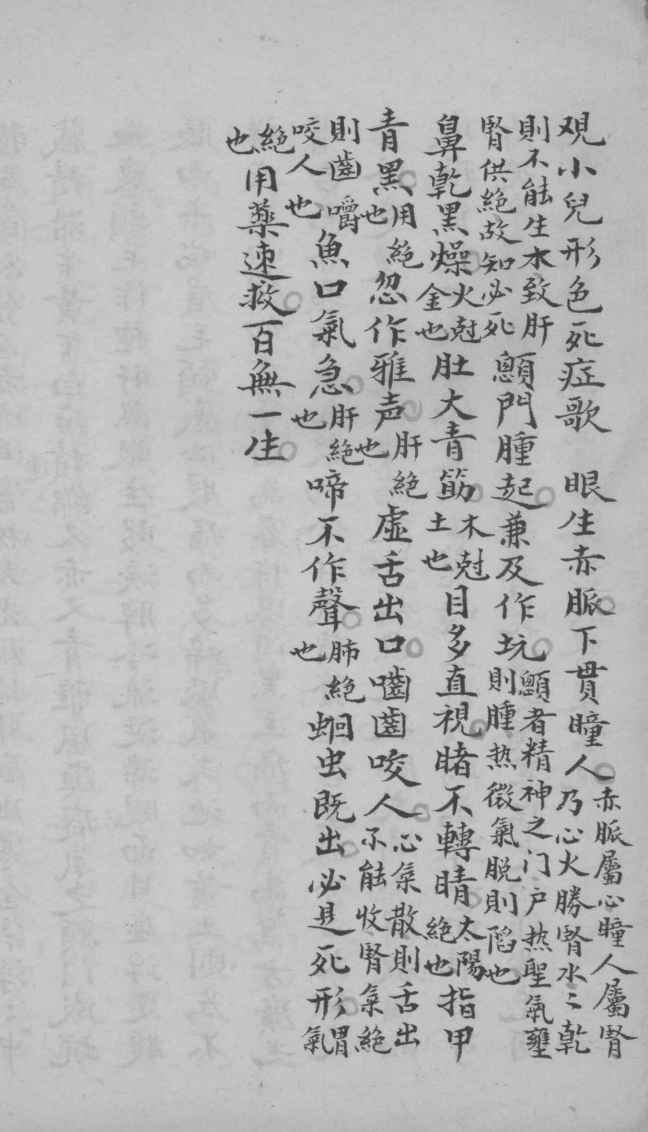 观小兒形色死症歌　眼生赤脈下貫瞳人赤脈屬心瞳人屬腎乃心火勝腎水〻乾
則不能生木致肝腎供絕故知必死顖門腫起兼及作坑顖者精神之门户热聖氣壅則腫热微氣脱則陷也
鼻乾黑燥火尅金也肚大青筋木尅土也目多直視睹不轉睛太陽絕也指甲
青黑用絕也忽作雅声肝絕也虛舌出口嚙齒咬人心氣散則舌出不能收腎氣絕
則齒嚼咬人也魚口氣急肝絕也啼不作聲肺絕也蛔虫既出必是死形胃氣
絕也用藥速救百無一生